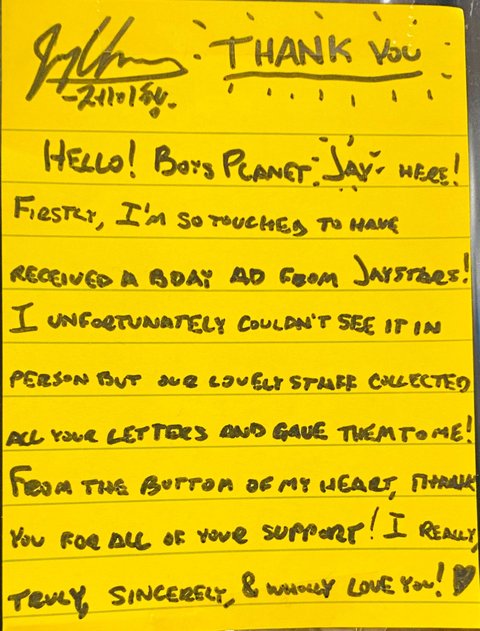 THANK YOU
HELLO! BOYS PLANET JAY HERE!
FIRSTLY, I'M SO TOUCHED TO HAVE
RECEIVED A BDAY AD FROM JAYSTARS!
I UNFORTUNATELY COULDN'T SEE IT IN
PERSON BUT OUR LOVELY STAFF COLLECTED
ALL YOUR LETTERS AND GAVE THEM TO ME!
FROM THE BOTTOM OF MY HEART, THANK
YOU FOR ALL OF YOUR SUPPORT! I REALLY,
TRULY, SINCERELY, & WHOLLY LOVE YOU! ♥